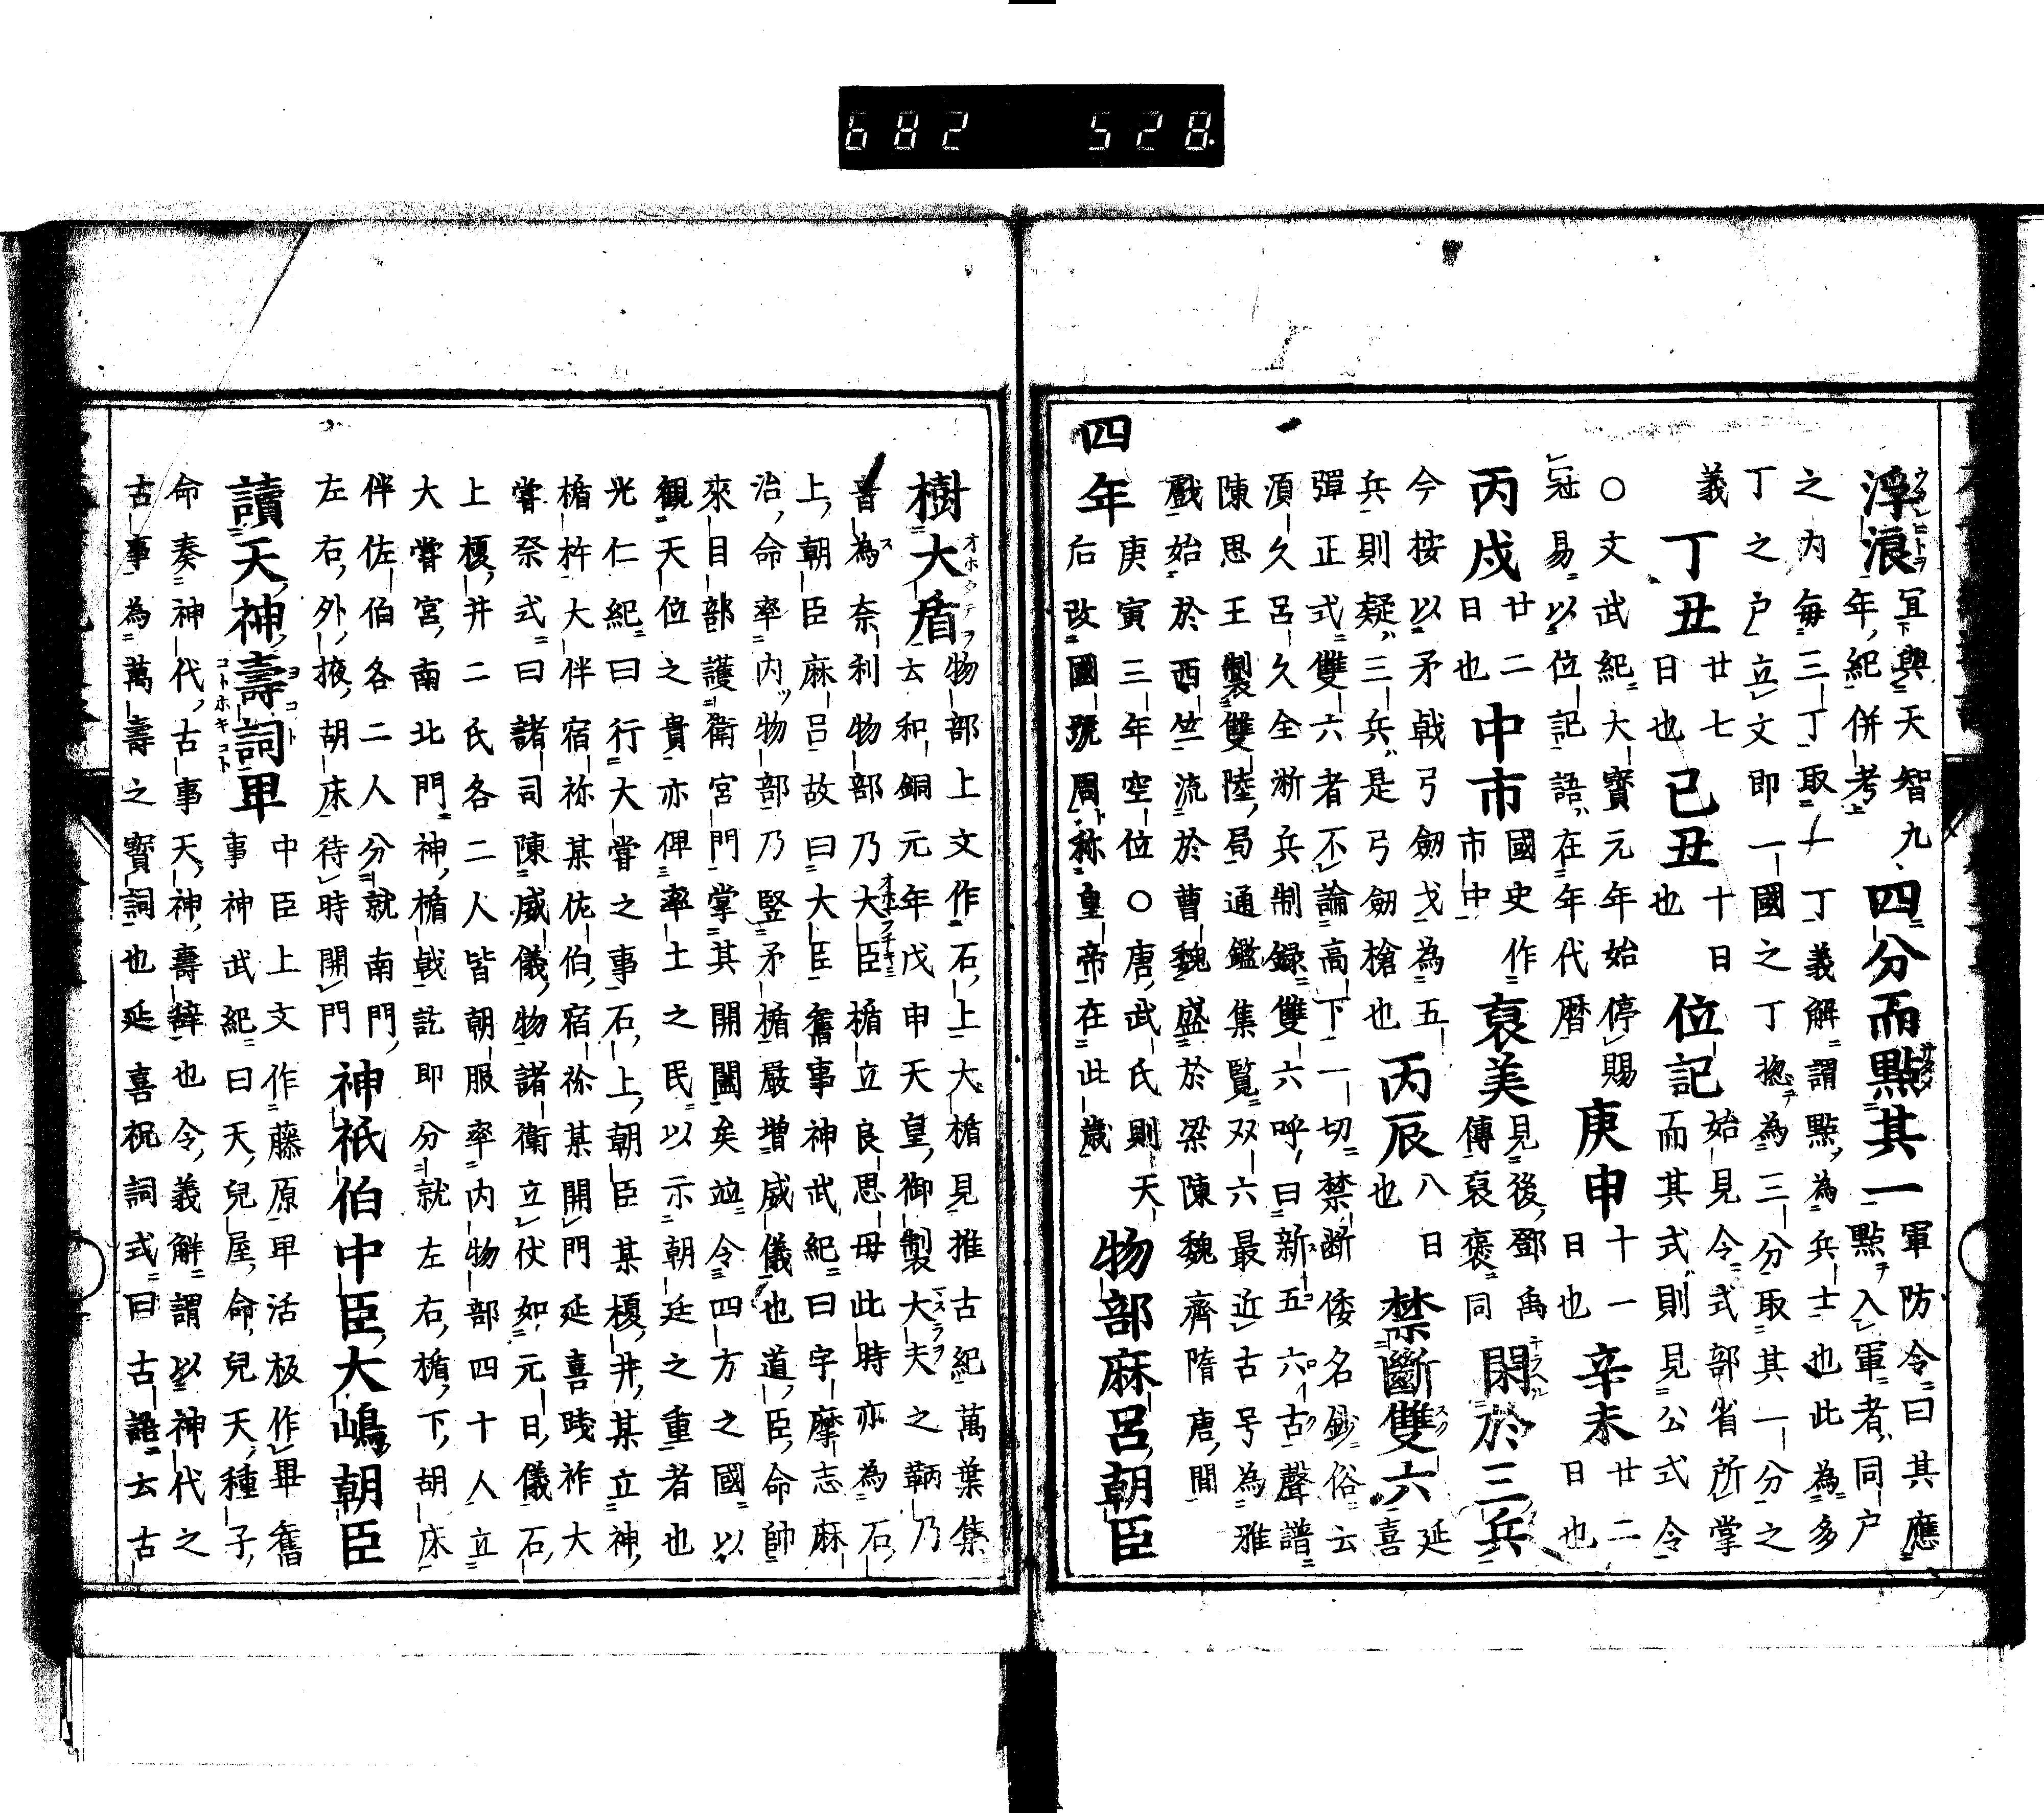 682 528
浮浪 宜与天智九年紀併考 四分而點其一 軍防令曰其應點入軍者同戶
之内每三丁取一丁義解謂點為兵士也此為多
丁之户立文即一國之丁惣為三分取其一分之
義 丁丑 廿七日也 己丑 十日也 位記 始見令式部省所掌而其式則見公式令
○文武紀大寶元年始停賜
冠易以位記語在年代暦 庚申 十一日也 辛未 廿二日也
丙戌 廿二日也 中市 國史作市中 裒美 見後鄧禹傳裒褒同 閑於三兵
今按以矛戟弓劒戈為五
兵則疑三兵是弓劒槍也 丙辰 八日也 禁斷雙六 延喜
彈正式雙六者不論高下一切禁断倭名鈔俗云
湏久呂久全淅兵制録雙六呼曰新五六古聲譜
陳思王製雙陸局通鑑集覧双六最近古号為雅
戲始於西竺流於曹魏盛於梁陳魏齊隋唐間
四年 庚寅三年空位○唐武氏則天
后改國號周称皇帝在此歳 物部麻呂朝臣
樹大盾 物部上文作石上大楯見推古紀萬葉集
云和銅元年戊申天皇御製大夫之鞆乃
音為奈利物部乃大臣楯立良思母此時亦為石
上朝臣麻呂故曰大臣舊事神武紀曰宇摩志麻
治命率内物部乃竪矛楯嚴増威儀也道臣命帥
來目部護衛宮門掌其開闔矣竝令四方之國以
觀天位之貴亦俾率土之民以示朝廷之重者也
光仁紀曰行大甞之事石上朝臣某榎井某立神
楯杵大伴宿祢某佐伯宿祢某開門延喜践祚大
甞祭式曰諸司陳威儀物諸衛立仗如元日儀石
上榎井二氏各二人皆朝服率内物部四十人立
大甞宮南北門神楯戟訖即分就左右楯下胡床
伴佐伯各二人分就南門
左右外掖胡床待時開門 神祇伯中臣大嶋朝臣
讀天神壽詞畢 中臣上文作藤原畢活板作㽗舊
事神武紀曰天兒屋命兒天種子
命奏神代古事天神壽辞也令義解謂以神代之
古事為萬壽之寳詞也延喜祝詞式曰古語云古